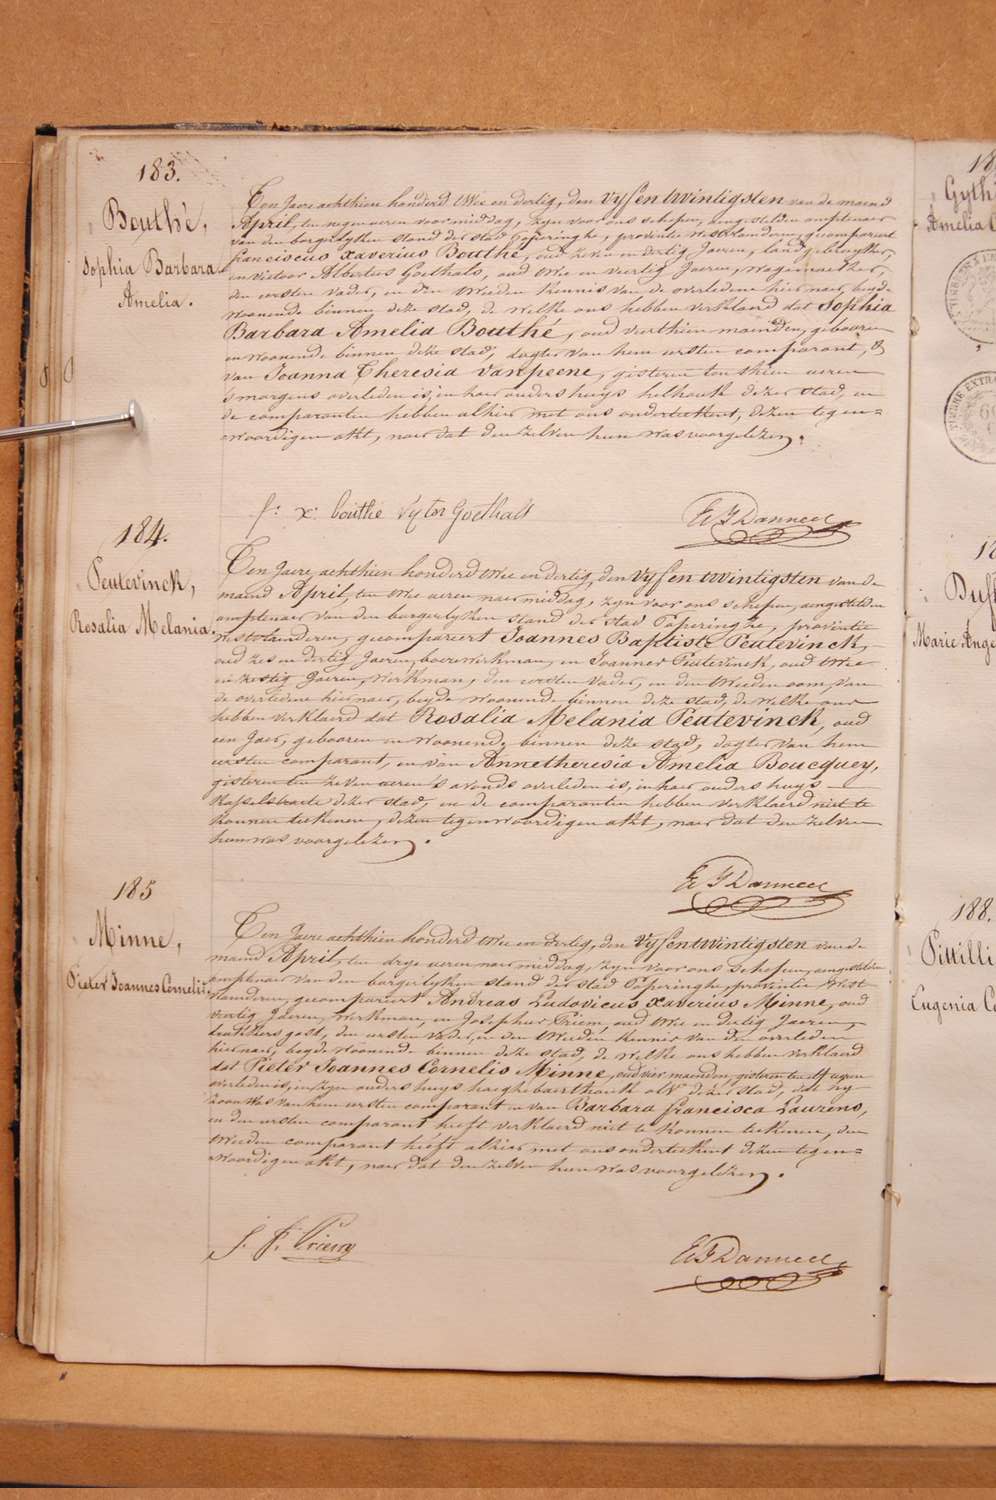 183.
Bouthé,
Sophia Barbara
Amelia.
Ten Jaere achthien honderd twee en dertig, den vyfentwintigsten van de maend
April, ten negen ueren voormiddag, zyn voor ons schepen, aengestelden amptenaer
van den borgerlyken stand der stad Poperinghe, provintie westvlanderen, gecompareert
franciscus Xaverius Bouthé, oud zeven en dertig Jaeren, landgebruyker,
en victoor Albertus Goethals, oud twee en veertig Jaeren, wagenmaeker,
den eersten vader, en den tweeden kennis van de overledene hiernaer, beyde
woonende binnen deze stad, de welke ons hebben verklaerd dat Sophia
Barbara Amelia Bouthé, oud vierthien maenden, gebooren
en woonende binnen deze stad, dogter van hem eersten comparant, &
van Joanna Theresia Vanpeene, gisteren ten thien ueren
s'morgens overleden is, in haer ouders huys helhoek dezer stad, en
de comparanten hebben alhier met ons onderteekent, dezen tegen=
woordigen akt, naer dat den zelven hun was voorgelezen.
f: x: bouthe Vytor Goethals
E F Danneel
184.
Peutevinck,
Rosalia Melania.
Ten Jaere achthien honderd twee en dertig, den vyfentwintigsten van de
maend April, ten twee ueren naermiddag, zyn voor ons schepen, aengestelden
amptenaer van den borgerlyken stand der stad Poperinghe, provintie
westvlanderen, gecompareert Joannes Baptiste Peutevinck,
oud zes en dertig Jaeren, boerewerkman, en Joannes Peutevinck, oud twee
en zestig Jaeren, werkman, den eersten vader, en den tweeden oom van
de overledene hiernaer, beyde woonende binnen deze stad, de welke ons
hebben verklaerd dat Rosalia Melania Peutevinck, oud
een Jaer, gebooren en woonende binnen deze stad, dogter van hem
eersten comparant, en van Annetheresia Amelia Boucquey,
gisteren ten zeven ueren s'avonds overleden is, in haer ouders huys
kasselstraete dezer stad, en de comparanten hebben verklaerd niet te
konnen teekenen, dezen tegenwoordigen akt, naer dat den zelven
hun was voorgelezen.
E F Danneel
185
Minne,
Pieter Joannes Cornelis.
Ten Jaere achthien honderd twee en dertig, den vyfentwintigsten van de
maend April, ten drye ueren naermiddag, zyn voor ons schepen, aengestelden
amptenaer van den borgerlyken stand der stad Poperinghe, provintie West
vlanderen, gecompareert Andreas Ludovicus Xaverius Minne, oud
veertig Jaeren, werkman, en Josephus Priem, oud twee en dertig Jaeren,
bakkersgast, den eersten vader, en den tweeden kennis van den overleden
hiernaer, beyde woonende binnen deze stad, de welke ons hebben verklaerd
dat Pieter Joannes Cornelis Minne, oud vier maenden, gisteren ten elf ueren
overleden is, in zyn ouders huys dezer stad, dat hy
zoon was van hem eersten comparant en van Barbara francisca Laurens,
en den eersten comparant heeft verklaerd niet te konnen teekenen, den
tweeden comparant heeft alhier met ons onderteekent dezen tegen=
woordigen akt, naer dat den zelven hun was voorgelezen.
J. F. Priem
E F Danneel
Gythi
Amelia C
Duff
Marie Ange
188.
Pittilli
Eugenia Co